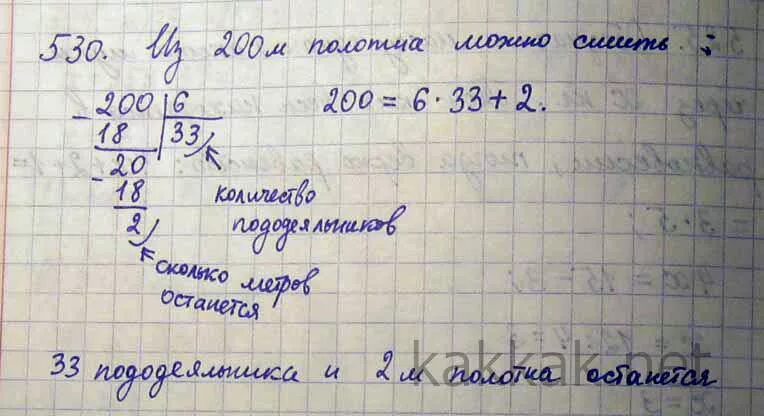 530. Из 200м полотна можно сшить :
- 200 | 6
18 | 33
200 = 6 · 33 + 2.
- 20
18
2
количество
пододеяльников
сколько метров
останется
33 пододеяльника и 2 м полотна останется
kakkak.net